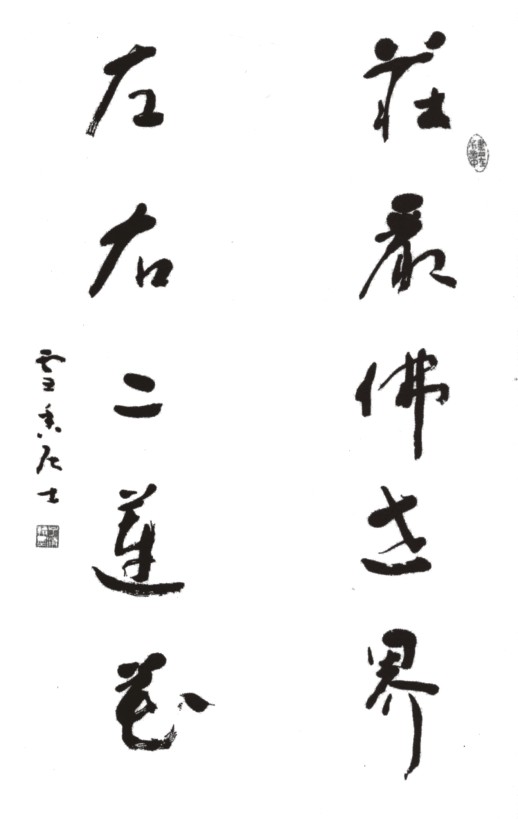 莊嚴佛世界
左右二蓮花
雪香居士